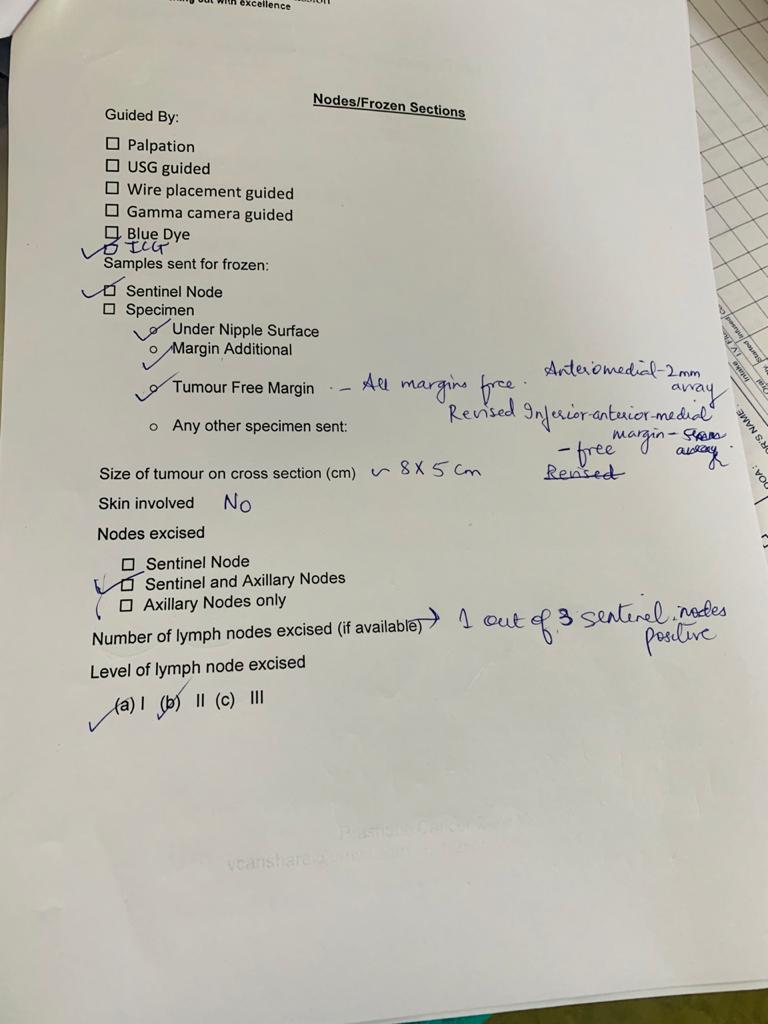 out with excellence
Nodes/Frozen Sections
Guided By:
☐ Palpation
☐ USG guided
☐ Wire placement guided
☐ Gamma camera guided
☐ Blue Dye
☐ ICG
Samples sent for frozen:
☐ Sentinel Node
☐ Specimen
o Under Nipple Surface
o Margin Additional
o Tumour Free Margin - All margins free. Anteriomedial-2mm
array
Revised Inferior-anterior-medial
margin -
- free
o Any other specimen sent:
Size of tumour on cross section (cm) ~ 8 X 5 cm Revised
Skin involved No
Nodes excised
☐ Sentinel Node
☐ Sentinel and Axillary Nodes
☐ Axillary Nodes only
Number of lymph nodes excised (if available) → 1 out of 3 sentinel nodes
positive
Level of lymph node excised
(a) I (b) II (c) III